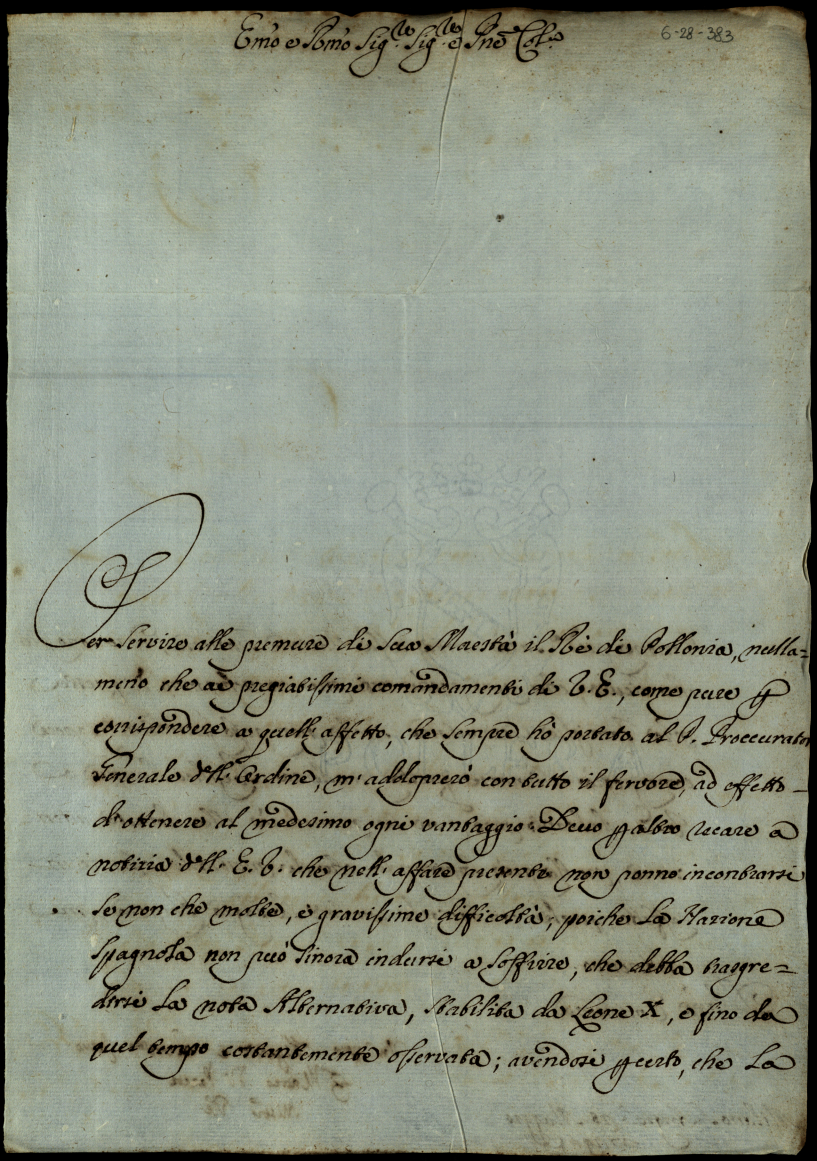 Emo e Rmo Sig.re Sig.re e Pne Col.o
6-28-383
Per servire alle premure di Sua Maestà il Rè di Pollonia, nulla=
meno che ai pregiatissimi comandamenti di V. E., come pure p
corrispondere a quell' affetto, che sempre hò portato al P. Proccurator
Generale dell' Ordine, m' adoloprerò con tutto il fervore, ad effetto
d' ottenere al medesimo ogni vantaggio. Devo p altro recare a
notizia dell' E. V. che nell' affare presente non ponno incontrarsi
se non che molte, e gravissime difficoltà; poiche la Nazione
Spagnola non può sinora indursi a soffrire, che debba trasgre=
dirsi la nota Alternativa, stabilita da Leone X, e fino da
quel tempo costantemente osservata; avendosi p certo, che la